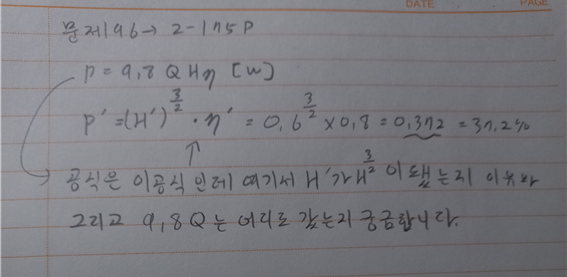 DATE PAGE
문제196→ 2-175P
P = 9,8 Q H η [w]
P' = (H')^3/2 · η' = 0,6^3/2 × 0,8 = 0,372 = 37,2%
공식은 이공식 인데 여기서 H'가 H^3/2 이 됐는지 이유와
그리고 9,8Q는 어디로 갔는지 궁금합니다.